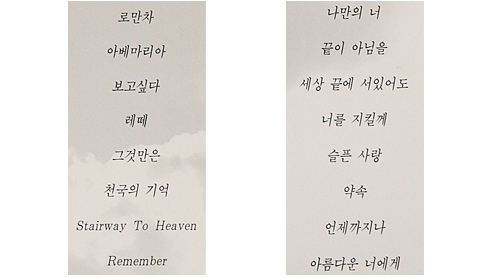 로만차
아베마리아
보고싶다
레떼
그것만은
천국의 기억
Stairway To Heaven
Remember
나만의 너
끝이 아님을
세상 끝에 서있어도
너를 지킬께
슬픈 사랑
약속
언제까지나
아름다운 너에게